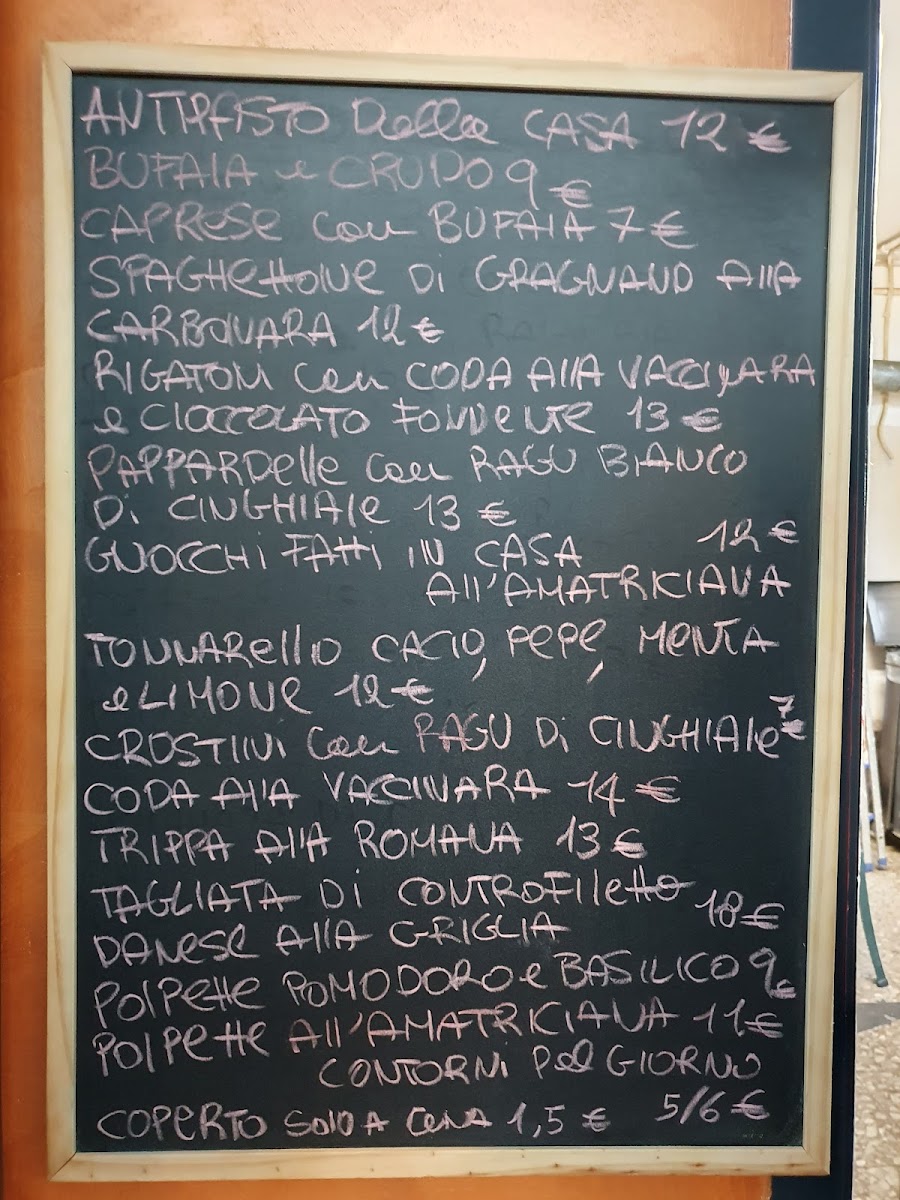 ANTIPASTO Della CASA 12 €
BUFALA e CRUDO 9 €
CAPRESE con BUFALA 7 €
SPAGHEttONE Di GRAGNANO AllA
CARBONARA 12 €
RIGATONI con CODA AllA VACCINARA
e CIOCCOLATO FONDeNTE 13 €
PAPPARDelle con RAGU BIANCO
Di CINGHIAle 13 €
GNOCCHi FAtti IN CASA 12 €
All'AMATRICIANA
TONNARellO CACIO, PePe, MeNTA
e LIMONe 12 €
CROSTINI con RAGU Di CINGHIAle 7 €
CODA AllA VACCINARA 14 €
TRIPPA AllA ROMANA 13 €
TAGLIATA Di CONTROFIletto 18 €
DANeSe AllA GRIGLIA
POlPette POMODORO e BASILICO 9 €
POlPette All'AMATRICIANA 11 €
CONTORNI Del GIORNO
5/6 €
COPERTO SOlO A CeNA 1,5 €